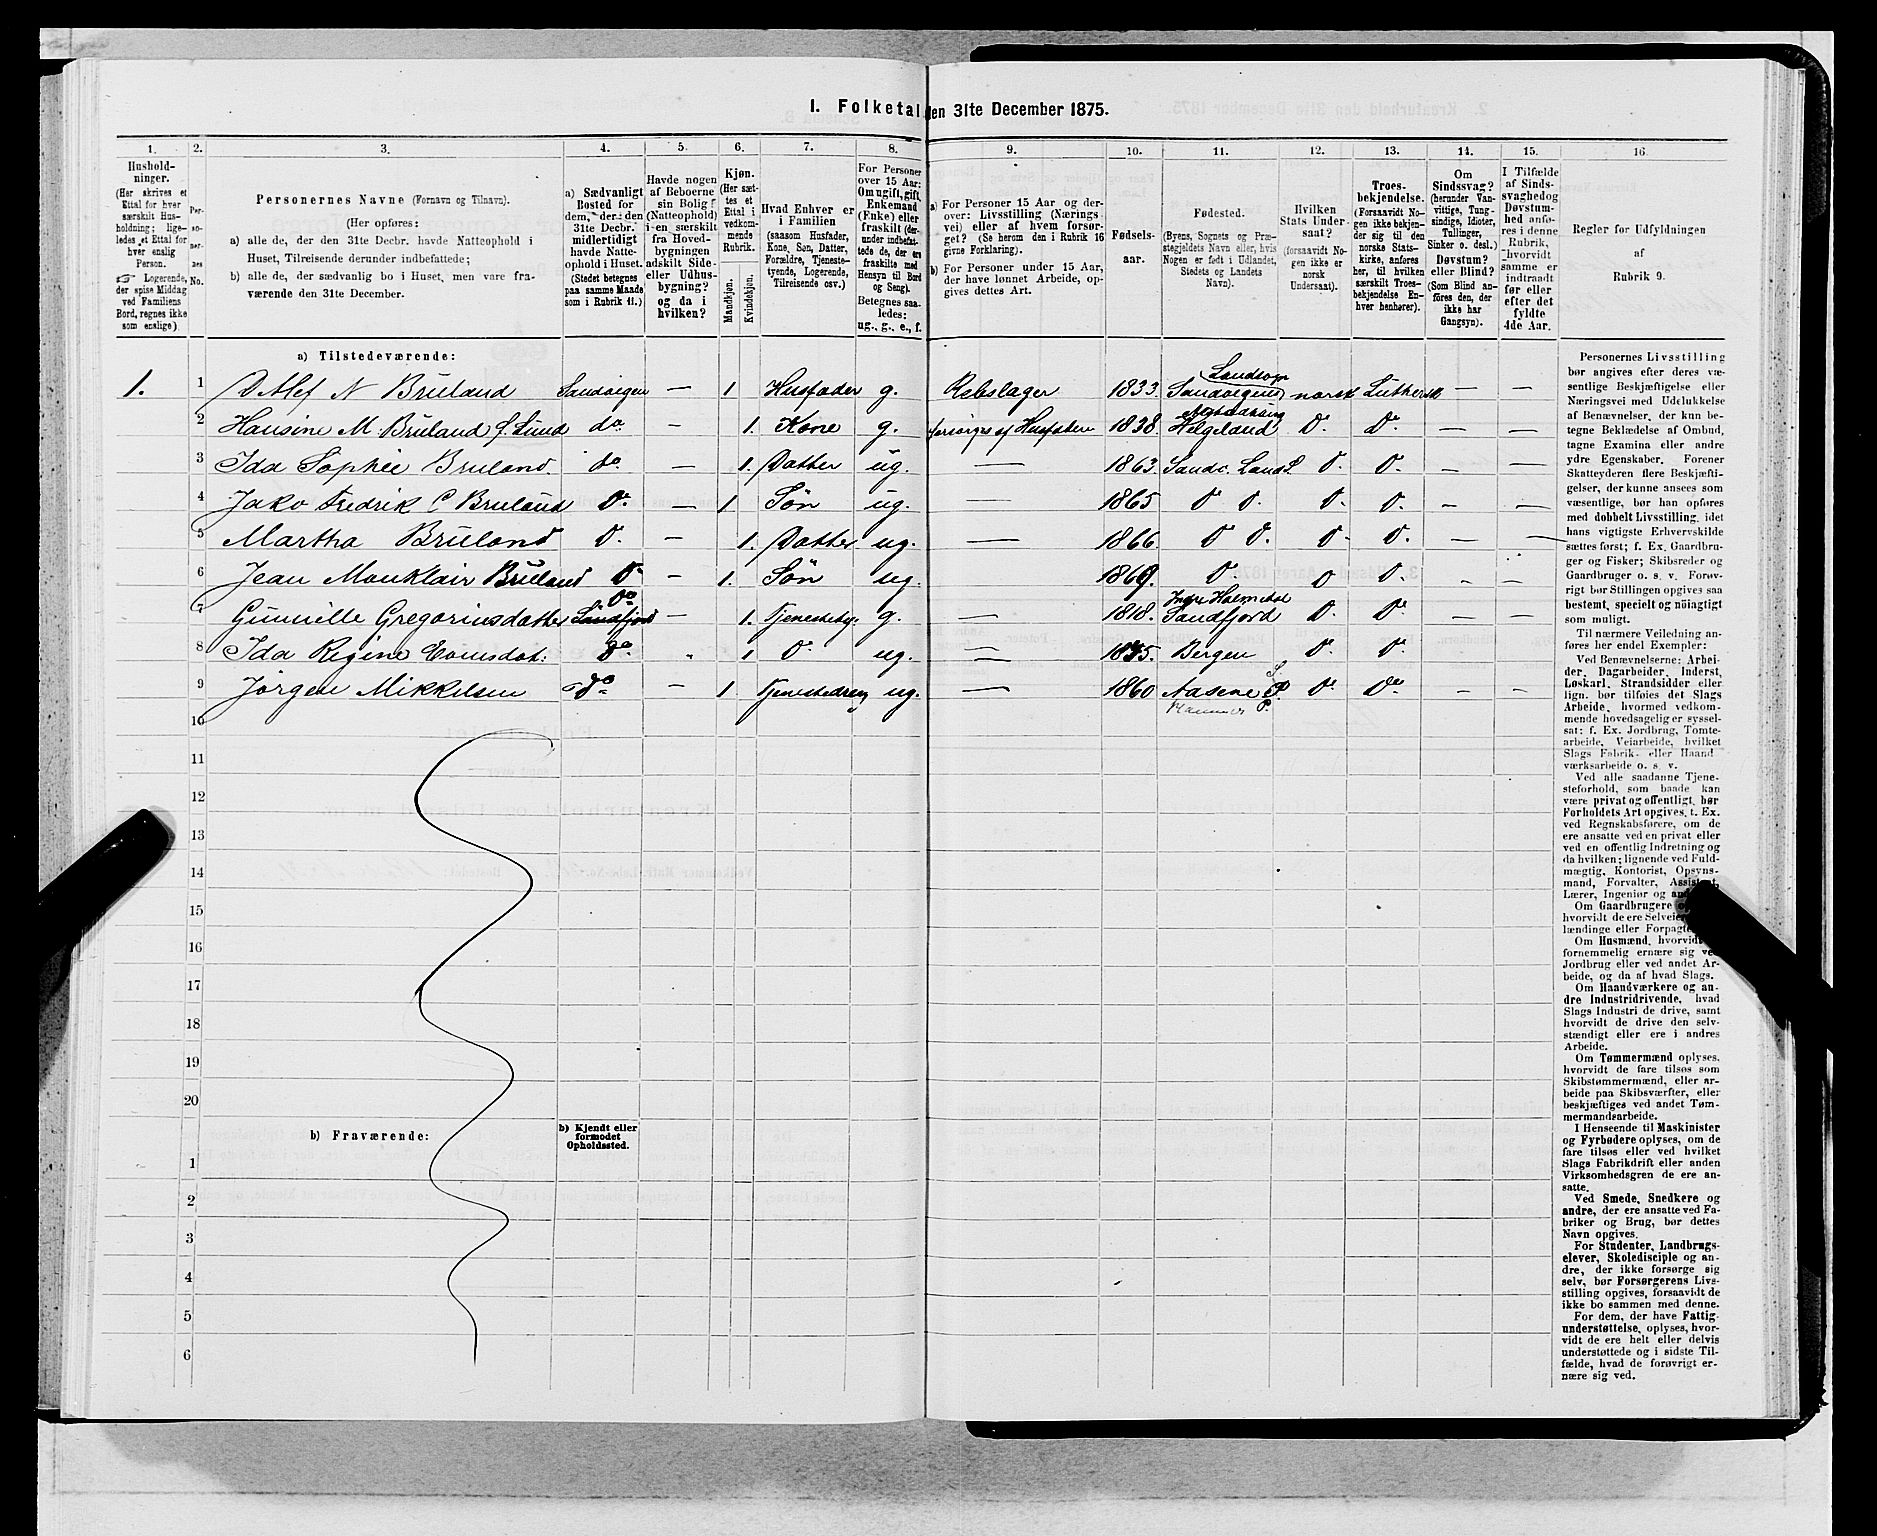 I. Folketal den 31te December 1875.
1. 2. 3. 4. 5. 6. 7. 8. 9. 10. 11. 12. 13. 14. 15. 16.
Husholdninger.
(Her skrives et
Ettal for hver
særskilt Hus-
holdning; lige-
ledes et Ettal for
hver enslig
Person.
☞ Logerende,
der spise Middag
ved Familiens
Bord, regnes ikke
som enslige).
Per-
so-
ner-
nes
No.
Personernes Navne (Fornavn og Tilnavn).
(Her opføres:
a) alle de, der den 31te Decbr. havde Natteophold i
Huset, Tilreisende derunder indbefattede;
b) alle de, der sædvanlig bo i Huset, men vare fra-
værende den 31te December.
a) Sædvanligt
Bosted for
dem, der den
31te Decbr.
midlertidigt
havde Natte-
ophold i Huset.
(Stedet betegnes
paa samme Maade
som i Rubrik 11.)
Havde nogen
af Beboerne
sin Bolig
(Natteophold)
i en særskilt
fra Hoved-
bygningen
adskilt Side-
eller Udhus-
bygning?
og da i
hvilken?
Kjøn.
(Her sæt-
tes et
Ettal i
vedkom-
mende
Rubrik.
Mandkjøn.
Kvindekjøn.
Hvad Enhver er
i Familien
(saasom Husfader,
Kone, Søn, Datter,
Forældre, Tjeneste-
tyende, Logerende,
Tilreisende osv.)
For Personer
over 15 Aar:
Om ugift, gift,
Enkemand
(Enke) eller
fraskilt (der-
under indbefat-
tede de, der ere
fraskilte med
Hensyn til Bord
og Seng).
Betegnes saa-
ledes:
ug., g., e., f.
a) For Personer 15 Aar og der-
over: Livsstilling (Nærings-
vei) eller af hvem forsør-
get? (Se herom den i Rubrik 16
givne Forklaring).
b) For Personer under 15 Aar,
der have lønnet Arbeide, op-
gives dettes Art.
Fødsels-
aar.
Fødested.
(Byens, Sognets og Præ-
stegjeldets Navn eller, hvis
Nogen er født i Udlandet,
Stedets og Landets
Navn).
Hvilken
Stats Under-
saat?
(forsaavidt No-
gen ikke er
norsk
Undersaat).
Troes-
bekjendelse.
(Forsaavidt No-
gen ikke bekjen-
der sig til den
norske Stats-
kirke, anføres
her, til hvilken
særskilt Troes-
bekjendelse En-
hver henhører).
Om
Sindssvag?
(herunder Van-
vittige, Tung-
sindige, Idioter,
Tullinger,
Sinker o. desl.)
Døvstum?
eller Blind?
(Som Blind an-
føres den, der
ikke har
Gangsyn).
I Tilfælde
af Sinds-
svaghed og
Døvstum-
hed anfø-
res i denne
Rubrik,
hvorvidt
samme er
indtraadt
før eller
efter det
fyldte
4de Aar.
Regler for Udfyldningen
af
Rubrik 9.
a) Tilstedeværende:
1. 1 Detlef N Bruland Sandvigen — 1 Husfader g. Rebslager 1833. Sandvigens Landsogn norsk Luthersk — —
2 Hansine M. Bruland f. Lund do — 1. Kone g. forsørges af Husfaderen 1838. Helgeland Do. Do. — —
3 Ida Sophie Bruland. do. — 1. Datter ug. — 1863. Sandv. Lands. D. D. — —
4 Jako Fredrik C Bruland Do. — 1 Søn ug. — 1865 D D. D. D. — —
5 Martha Bruland D. — 1. Datter ug. — 1866. D D. D. D. — —
6 Jean Monklair Bruland Do — 1. Søn ug. 1869. D. D D. — —
7 Gunnille Gregoriusdatter Sandfjord Do — 1. Tjenestety. g. — 1818. Indre Holmedal Sandfjord D. Do. — —
8 Ida Regine Evensdat: Do. " 1 D. ug. — 1835. Bergen D. D.
9 Jörgen Mikkelsen do — 1 Tjenestedreng ug. — 1860 Aasene S. P. Do. Do. — —
Hammer P.
10
11
12
13
14
15
16
17
18
19
20
b) Fraværende:
b) Kjendt eller
formodet
Opholdssted.
1
2
3
4
5
6
Personernes Livsstilling
bør angives efter deres væ-
sentlige Beskjæftigelse eller
Næringsvei med Udelukkelse
af Benævnelser, der kun be-
tegne Beklædelse af Ombud,
tagne Examina eller andre
ydre Egenskaber. Forener
Skatteyderen flere Beskjæfti-
gelser, der kunne ansees som
væsentlige, bør han opføres
med dobbelt Livsstilling, idet
hans vigtigste Erhvervskilde
sættes først; f. Ex. Gaardbru-
ger og Fisker; Skibsreder og
Gaardbruger o. s. v. Forøv-
rigt bør Stillingen opgives saa
bestemt, specielt og nøiagtigt
som muligt.
Til nærmere Veiledning an-
føres her endel Exempler:
Ved Benævnelserne: Arbei-
der, Dagarbeider, Inderst,
Løskarl, Strandsidder eller
lign. bør tilføies det Slags
Arbeide, hvormed vedkom-
mende hovedsagelig er syssel-
sat: f. Ex. Jordbrug, Tomte-
arbeide, Veiarbeide, hvilket
Slags Fabrik- eller Haand-
værksarbeide o. s. v.
Ved alle saadanne Tjene-
steforhold, som baade kan
være privat og offentligt, bør
Forholdets Art opgives, t. Ex.
ved Regnskabsførere, om de
ere ansatte ved en privat eller
ved en offentlig Indretning og
da hvilken; lignende ved Fuld-
mægtig, Kontorist, Opsyns-
mand, Forvalter, Assistent,
Lærer, Ingeniør og
Om Gaardbrugere
hvorvidt de ere Selveiere
lændinge eller Forpagte
Om Husmænd, hvorvidt
fornemmelig ernære sig ved
Jordbrug eller ved andet Ar-
beide, og da af hvad Slags.
Om Haandværkere og an-
dre Industridrivende, hvad
Slags Industri de drive, samt
hvorvidt de drive den selv-
stændigt eller ere i andres
Arbeide.
Om Tømmermænd oplyses,
hvorvidt de fare tilsøs som
Skibstømmermænd, eller ar-
beide paa Skibsværfter, eller
beskjæftiges ved andet Tøm-
mermandsarbeide.
I Henseende til Maskinister
og Fyrbødere oplyses, om de
fare tilsøs eller ved hvilket
Slags Fabrikdrift eller anden
Virksomhedsgren de ere an-
satte.
Ved Smede, Snedkere og
andre, der ere ansatte ved Fa-
briker og Brug, bør dettes
Navn opgives.
For Studenter, Landbrugs-
elever, Skoledisciple og an-
dre, der ikke forsørge sig
selv, bør Forsørgerens Livs-
stilling opgives, forsaavidt de
ikke bo sammen med denne.
For dem, der have Fattig-
understøttelse, oplyses, hvor-
vidt de ere helt eller delvis
understøttede og i sidste Til-
fælde, hvad de forøvrigt er-
nære sig ved.